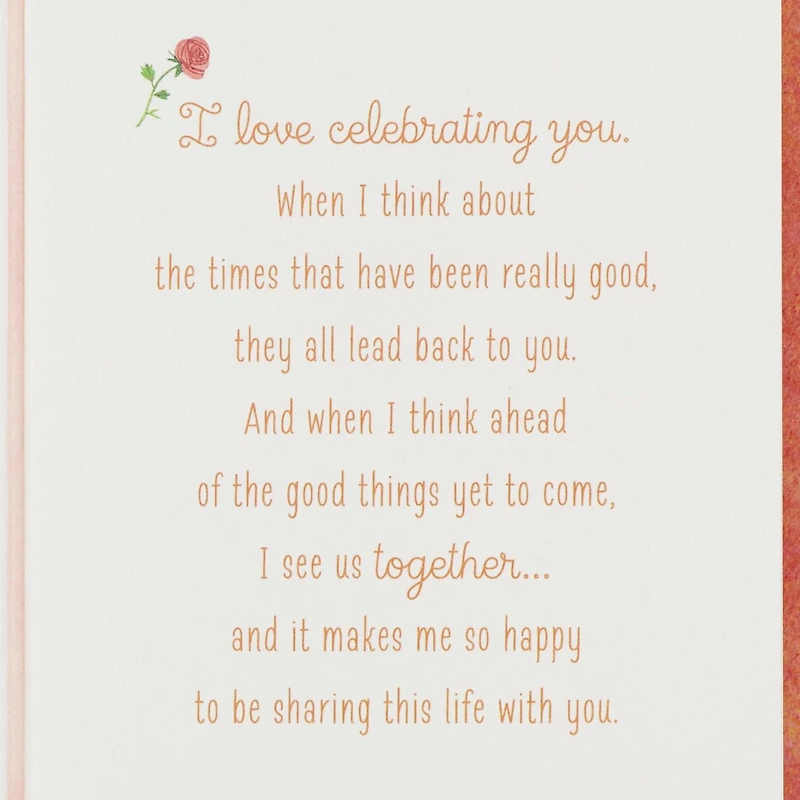 I love celebrating you.
When I think about
the times that have been really good,
they all lead back to you.
And when I think ahead
of the good things yet to come,
I see us together...
and it makes me so happy
to be sharing this life with you.